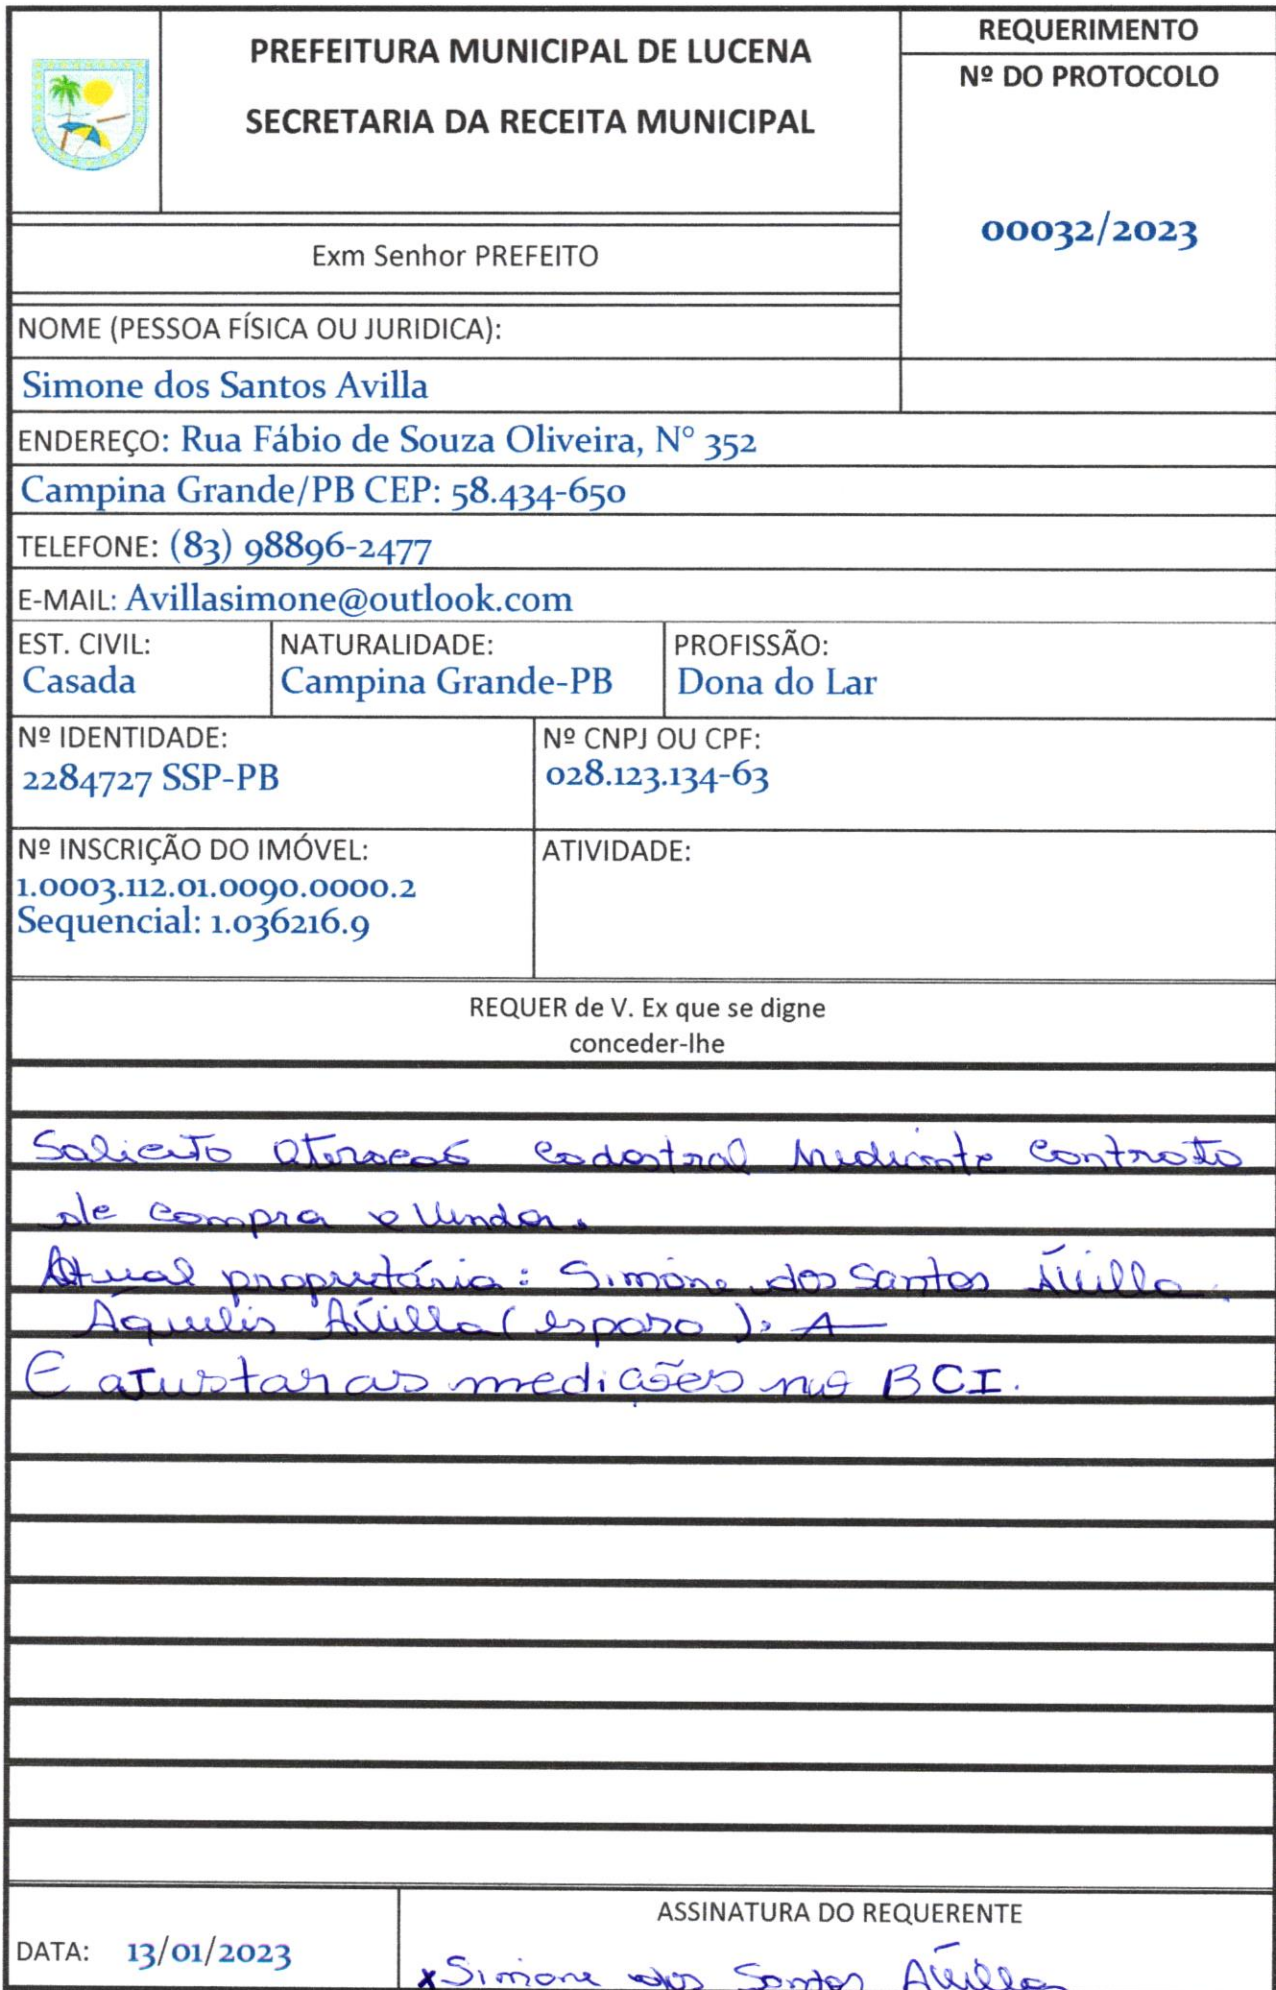 PREFEITURA MUNICIPAL DE LUCENA
SECRETARIA DA RECEITA MUNICIPAL
REQUERIMENTO
Nº DO PROTOCOLO
00032/2023
Exm Senhor PREFEITO
NOME (PESSOA FÍSICA OU JURIDICA):
Simone dos Santos Avilla
ENDEREÇO: Rua Fábio de Souza Oliveira, N° 352
Campina Grande/PB CEP: 58.434-650
TELEFONE: (83) 98896-2477
E-MAIL: Avillasimone@outlook.com
EST. CIVIL:
Casada
NATURALIDADE:
Campina Grande-PB
PROFISSÃO:
Dona do Lar
Nº IDENTIDADE:
2284727 SSP-PB
Nº CNPJ OU CPF:
028.123.134-63
Nº INSCRIÇÃO DO IMÓVEL:
1.0003.112.01.0090.0000.2
Sequencial: 1.036216.9
ATIVIDADE:
REQUER de V. Ex que se digne
conceder-lhe
Solicito cadastral mediante contrato
de compra e venda.
Atual propretária: Simone dos Santos Ávilla.
Ávilla (esposo). A
E ajustar as medições no BCI.
DATA: 13/01/2023
ASSINATURA DO REQUERENTE
x Simone dos Santos Ávilla